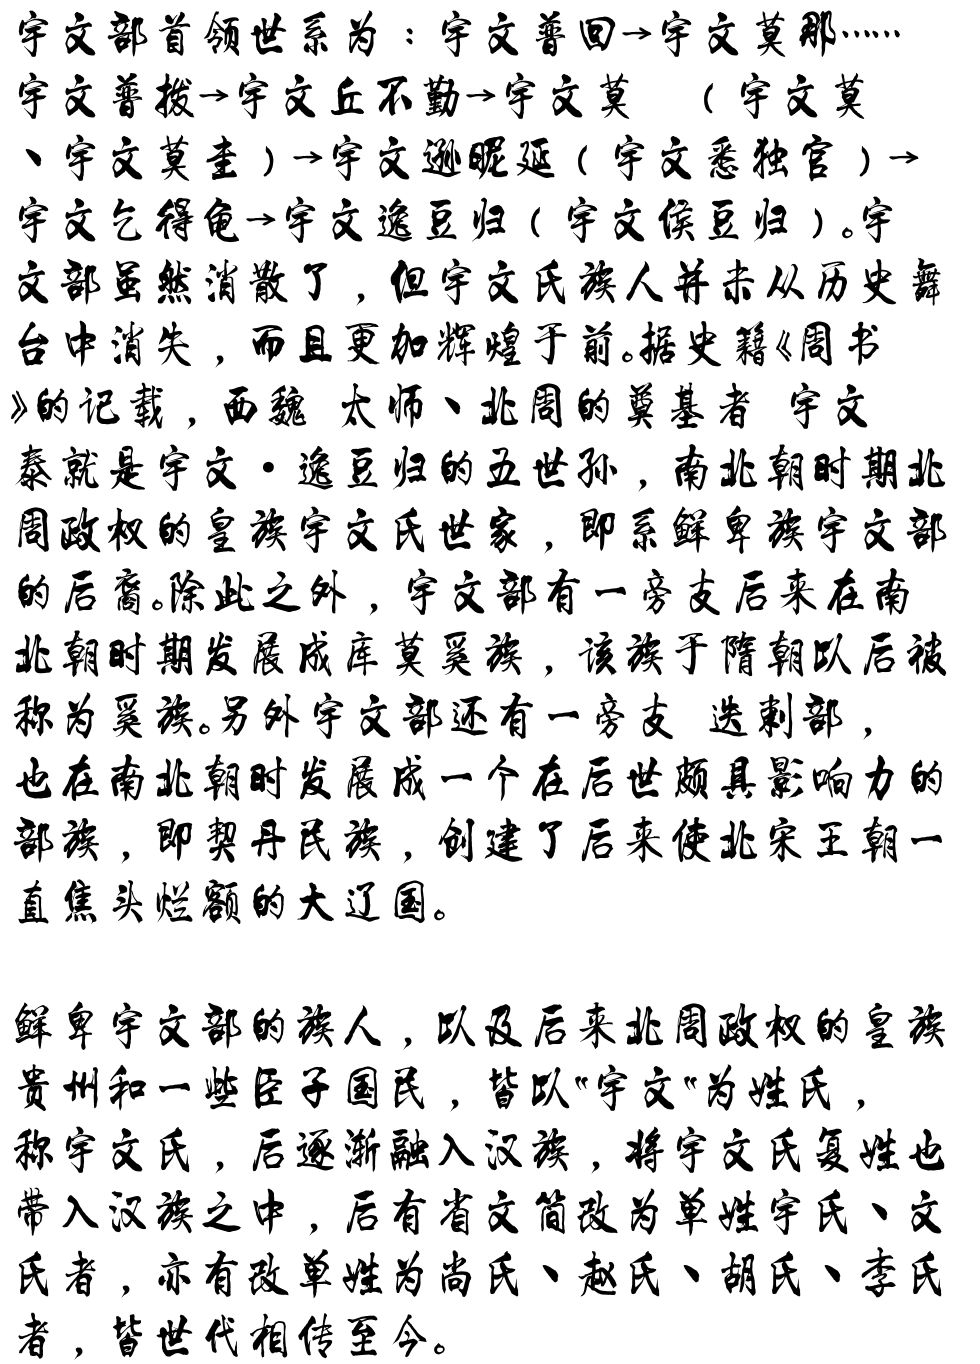 宇文部首领世系为：宇文普回→宇文莫那……
宇文普拨→宇文丘不勤→宇文莫　（宇文莫
、宇文莫圭）→宇文逊昵延（宇文悉独官）→
宇文乞得龟→宇文逸豆归（宇文侯豆归）。宇
文部虽然消散了，但宇文氏族人并未从历史舞
台中消失，而且更加辉煌于前。据史籍《周书
》的记载，西魏 太师、北周的奠基者 宇文
泰就是宇文·逸豆归的五世孙，南北朝时期北
周政权的皇族宇文氏世家，即系鲜卑族宇文部
的后裔。除此之外，宇文部有一旁支后来在南
北朝时期发展成库莫奚族，该族于隋朝以后被
称为奚族。另外宇文部还有一旁支 迭剌部，
也在南北朝时发展成一个在后世颇具影响力的
部族，即契丹民族，创建了后来使北宋王朝一
直焦头烂额的大辽国。
鲜卑宇文部的族人，以及后来北周政权的皇族
贵州和一些臣子国民，皆以“宇文“为姓氏，
称宇文氏，后逐渐融入汉族，将宇文氏复姓也
带入汉族之中，后有省文简改为单姓宇氏、文
氏者，亦有改单姓为尚氏、赵氏、胡氏、李氏
者，皆世代相传至今。